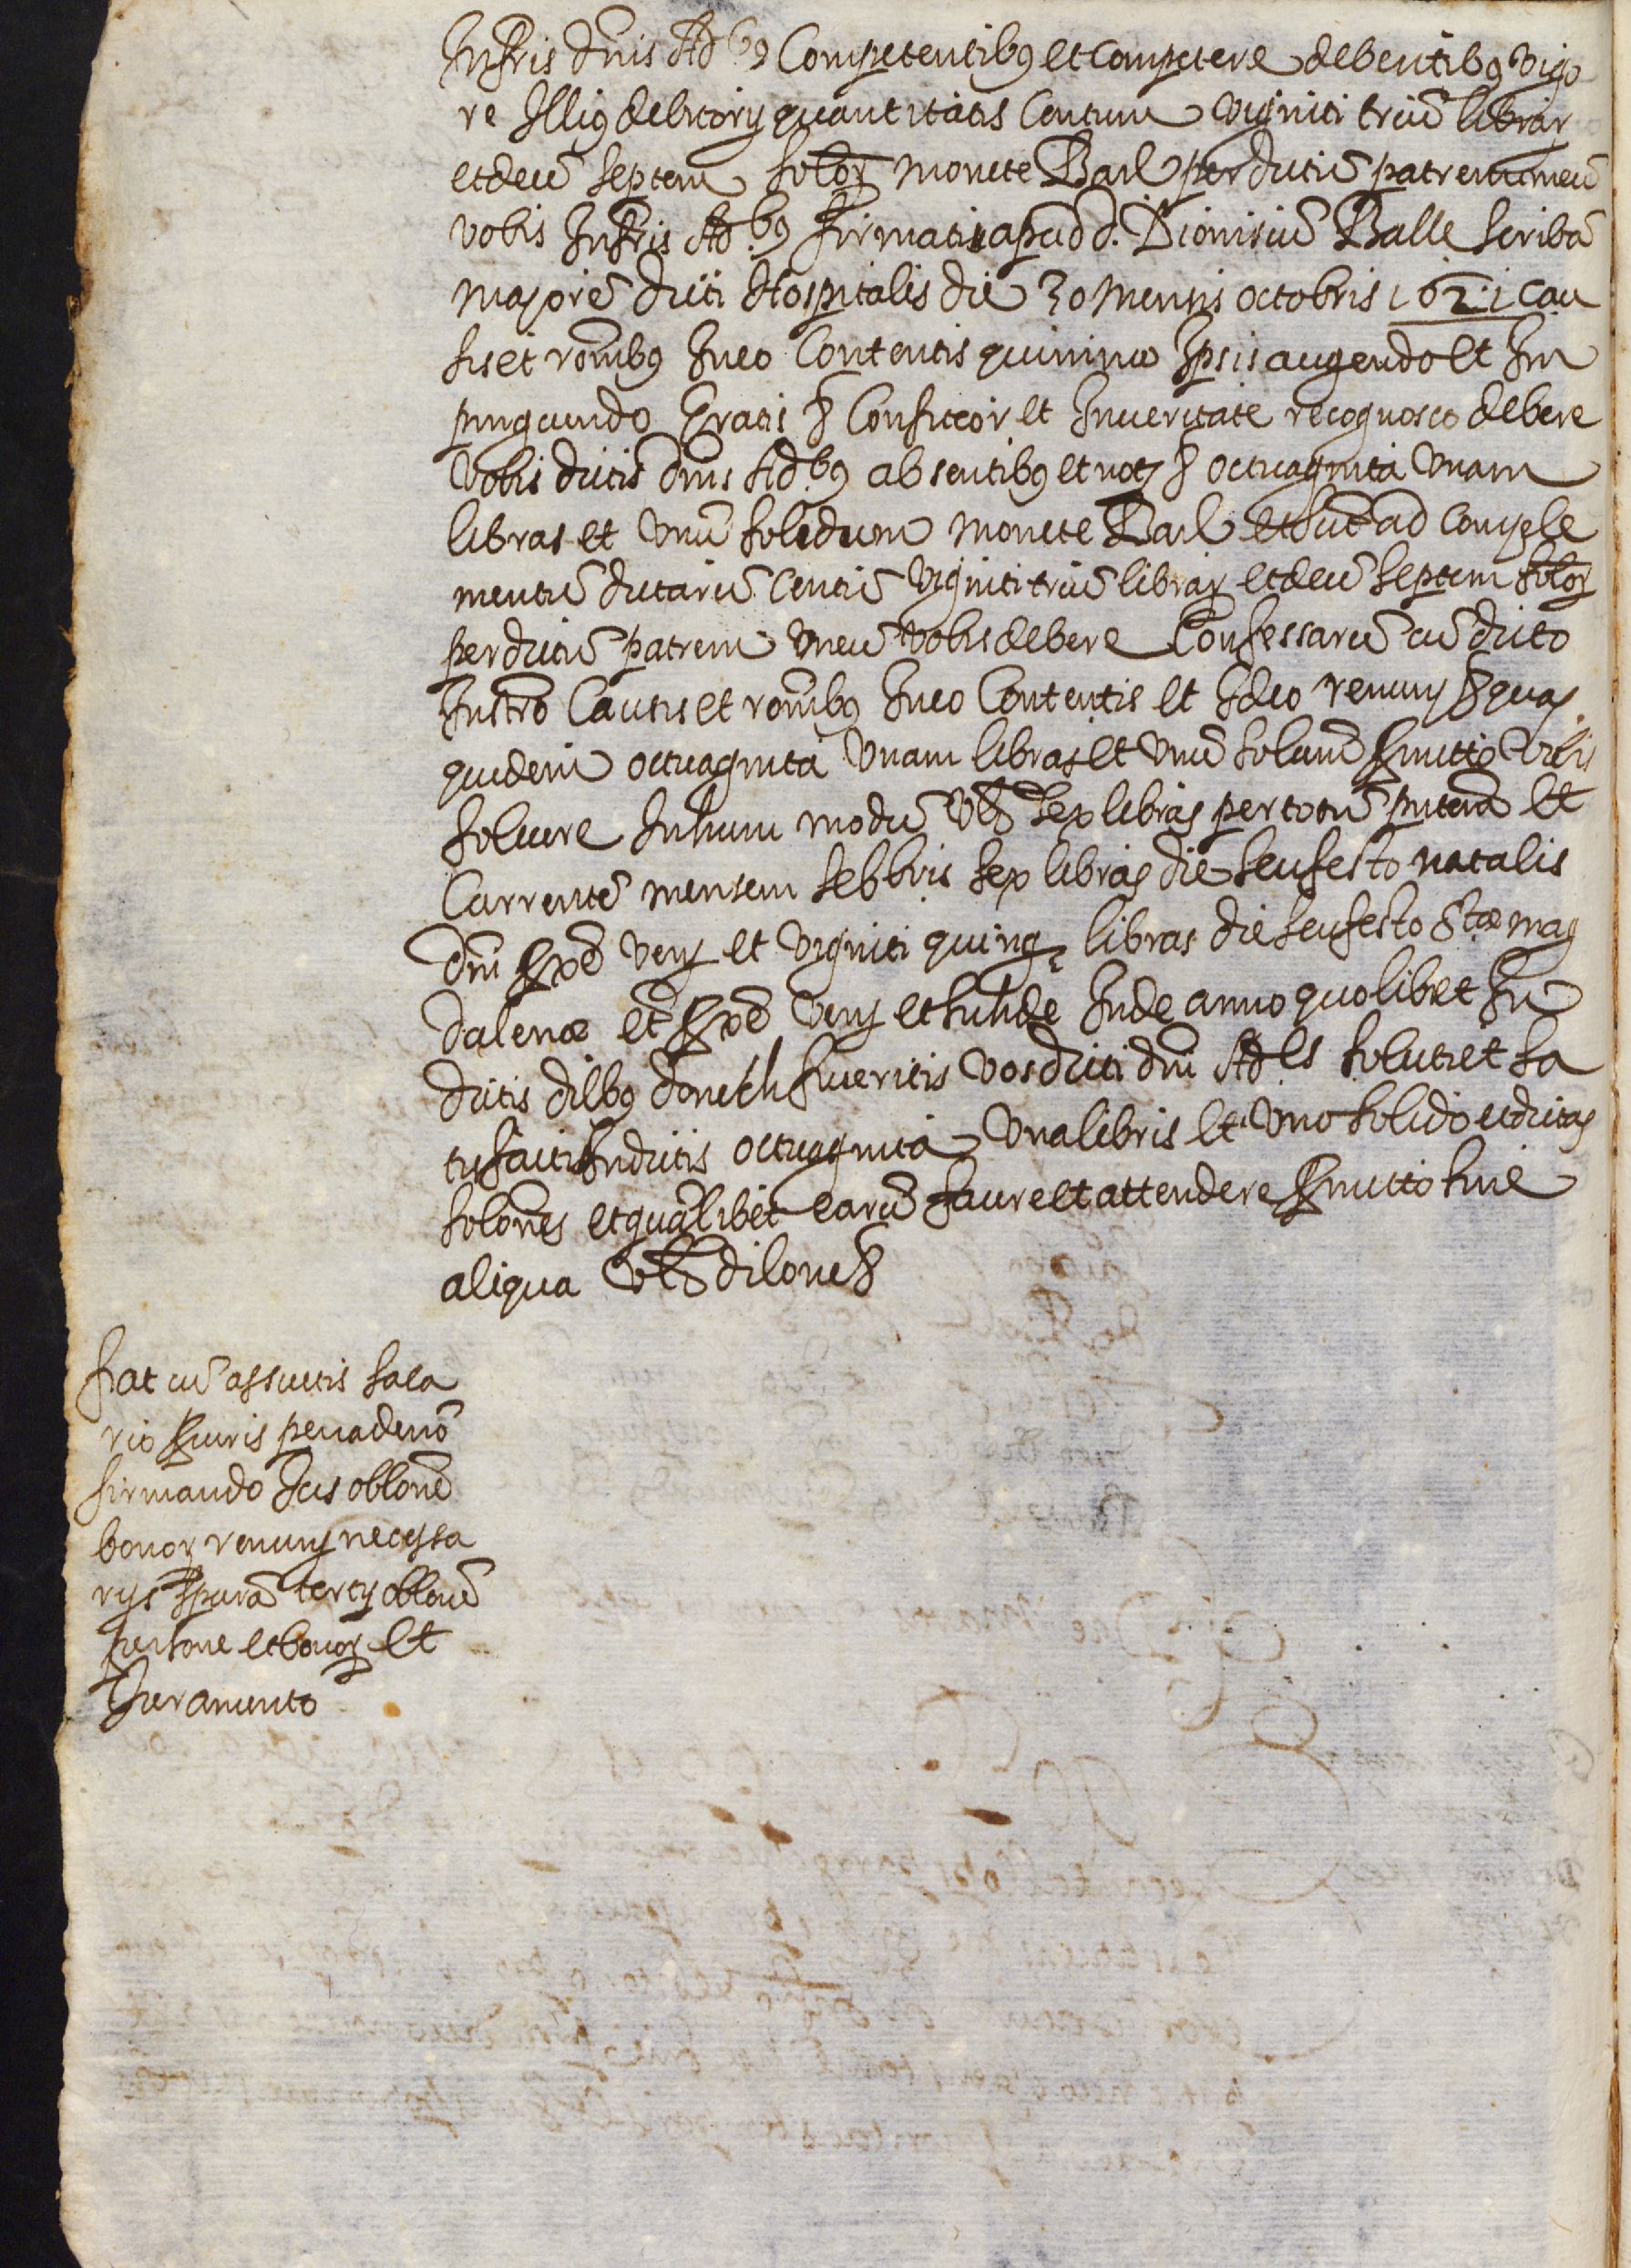 Infris dnis Adbꝰ Competentibꝰ et competere debentibꝰ vigo
re Illiꝰ debitorij quantitatis Centum viginti triũ librar
et decẽ septem solor monete Barl per dictũ patrem meũ
vobis Infris Ad.bꝰ firmati apud d. Dionisiũ Balle scribã
majorẽ dicti Hospitalis die 30 mensis octobris 1621 cau
sis et ronibꝰ In eo Contentis quinimo Ipsis augendo et Im
pinguando Gratis & Confiteor et In veritate recognosco debere
vobis dictis dnis Ad.bꝰ absentibꝰ et not & octuaginta vnam
libras et vnũ solidum monete Barl et sũt ad comple
mentũ dictarũ Centũ viginti triũ librar et decẽ septem solor
per dictũ patrem meũ vobis debere Confessarũ cũ dicto
Instrõ Causis et ronibꝰ In eo Contentis et Ideo renunꝰ & quas
quidem octuaginta vnam libras et vnũ solidũ promitto vobis
soluere In hunc modũ vts sex libras per totũ pntem et
Currentẽ mensem sebbris sex libras die seu festo natalis
dni proxẽ venꝰ et viginti quinq libras die seu festo Stæ mag
dalenæ etẽ proxẽ venꝰ et sic de Inde anno quolibet In
dictis dibꝰ donech fueritis vos dicti dni Ad.es soluti et sa
tisfacti In dictis octuaginta vna libris et vno solido et dictas
solones et quãlibet earũ facere et attendere promitto sine
aliqua vts dilone &
fiat cũ assuetis sala
rio procuris pena de nõ
firmando Jus oblone
bonor renunꝰ necessa
rijs spurã tertij oblone
persone et bonor et
Juramento